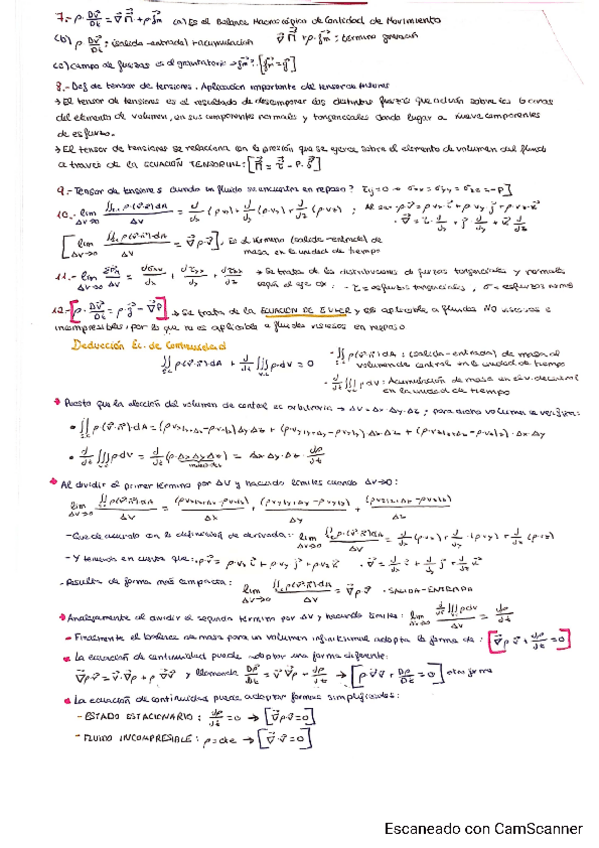 7.- ρ · Dv⃗/Dt = ∇⃗ Π⃗ + ρ f⃗m (a) Es el Balance Macroscópico de Cantidad de Movimiento
(b) ρ Dv⃗/Dt : (salida-entrada) + acumulación ∇⃗ Π⃗ + ρ · f⃗m : término generación
(c) Campo de fuerzas es el gravitatorio → f⃗m : [f⃗m = g⃗]
8.- Def de tensor de tensiones. Aplicación importante del tensor de
→ El tensor de tensiones es el resultado de descomponer las distintas fuerzas que actúan sobre las caras
del elemento de volumen, en sus componentes normales y tangenciales dando lugar a nueve componentes
de esfuerzo.
→ El tensor de tensiones se relaciona con la presión que se ejerce sobre el elemento de volumen del fluido
a través de la ECUACIÓN TENSORIAL: [Π⃗ = τ⃗ - P · δ⃗]
9.- Tensor de tensiones cuando un fluido se encuentra en reposo? τij = 0 → σxx = σyy = σzz = -P]
10.- lim ΔV→0 ∬ ρ(v⃗·n⃗)dA / ΔV = d/dx (ρvx) + d/dy (ρ·vy) + d/dz (ρ·vz) ;
[lim ΔV→0 ∬ ρ(v⃗·n⃗)dA / ΔV = ∇⃗ρ·v⃗]. Es el término (salida-entrada) de
masa en la unidad de tiempo
11.- lim ΔV→0 ΣFx / ΔV = dσxx/dx + dτyx/dy + dτzx/dz → Se trata de las distribuciones de fuerzas tangenciales y normales
según el eje ox : - τ = esfuerzos tangenciales, σ = esfuerzos norma
12.- [ρ · Dv⃗/Dt = ρ·g⃗ - ∇⃗P] → Se trata de la ECUACIÓN DE EULER y es aplicable a fluidos NO viscosos e
incompresibles, por lo que no es aplicable a fluidos viscosos en reposo
Deducción Ec. de Continuidad
∬ ρ(v⃗·n⃗)dA + d/dt ∭ ρ·dV = 0
- ∬ ρ(v⃗·n⃗)dA : (salida-entrada) de masa al
volumen de control en la unidad de tiempo
- d/dt ∭ ρdV: Acumulación de masa en el v. de control
en la unidad de tiempo
→ Puesto que la elección del volumen de control es arbitraria → ΔV = Δx · Δy · Δz ; para dicho volumen se verifica:
• ∬ ρ(v⃗·n⃗)dA = (ρvx|x+Δx - ρvx|x) Δy Δz + (ρvy|y+Δy - ρvy|y) Δx Δz + (ρvz|z+Δz - ρvz|z) · Δx · Δy
• d/dt ∭ ρdV = d/dt (ρ · Δx Δy Δz) = Δx · Δy · Δz · dρ/dt
• Al dividir el primer término por ΔV y haciendo límites cuando ΔV→0:
lim ΔV→0 ∬ ρ(v⃗·n⃗)dA / ΔV = (ρvx|x+Δx - ρvx|x) / Δx + (ρvy|y+Δy - ρvy|y) / Δy + (ρvz|z+Δz - ρvz|z) / Δz
- Que de acuerdo con la definición de derivada: lim ΔV→0 ∬ ρ(v⃗·n⃗)dA / ΔV = d/dx (ρvx) + d/dy (ρvy) + d/dz (ρvz)
- Y teniendo en cuenta que: ρv⃗ = ρvx i⃗ + ρvy j⃗ + ρvz k⃗ · ∇⃗ = d/dx i⃗ + d/dy j⃗ + d/dz k⃗
- Resulta de forma más compacta: lim ΔV→0 ∬ ρ(v⃗·n⃗)dA / ΔV = ∇⃗ρv⃗ · SALIDA-ENTRADA
→ Análogamente al dividir el segundo término por ΔV y haciendo límites: lim ΔV→0 d/dt ∭ ρdV / ΔV = dρ/dt
- Finalmente el balance de masa para un volumen infinitesimal adopta la forma de: [∇⃗ρv⃗ + dρ/dt = 0]
• La ecuación de continuidad puede adoptar una forma diferente:
∇⃗ρv⃗ = v⃗·∇⃗ρ + ρ∇⃗v⃗ y llamando Dρ/Dt = v⃗∇⃗ρ + dρ/dt → [ρ∇⃗v⃗ + Dρ/Dt = 0] otra forma
• La ecuación de continuidad puede adoptar formas simplificadas:
- ESTADO ESTACIONARIO : dρ/dt = 0 → [∇⃗ρ·v⃗ = 0]
- FLUIDO INCOMPRESIBLE : ρ = cte → [∇⃗·v⃗ = 0]
Escaneado con CamScanner